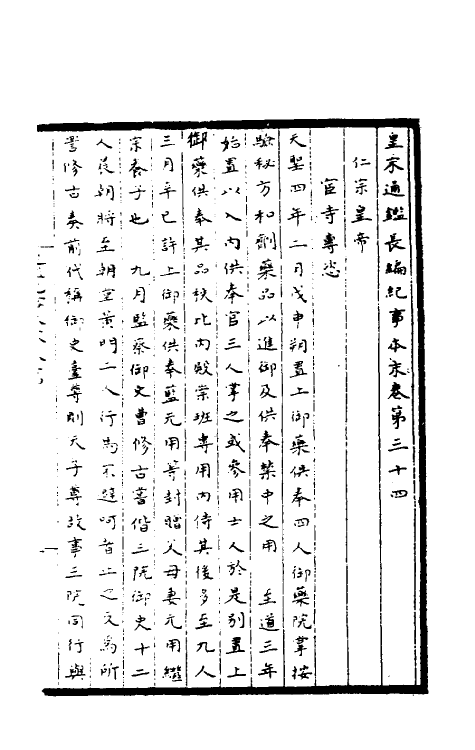 皇宋通鑑長編紀事本末卷第三十四
仁宗皇帝
宦寺專恣
天聖四年二月戊申朔置上御藥供奉四人御藥院掌按
驗秘方和劑藥品以進御及供奉禁中之用　至道三年
始置以入內供奉官三人掌之或參用士人於是別置上
御藥供奉其品秩比內殿崇班專用內侍其後多至九人
三月辛巳許上御藥供奉藍元用等封贈父母妻元用繼
宗養子也　九月監察御史曹修古嘗偕三院御史十二
人晨朝將至朝堂黃門二人行馬不避呵者止之反為所
詈修古奏前代稱御史臺尊則天子尊故事三院同行與